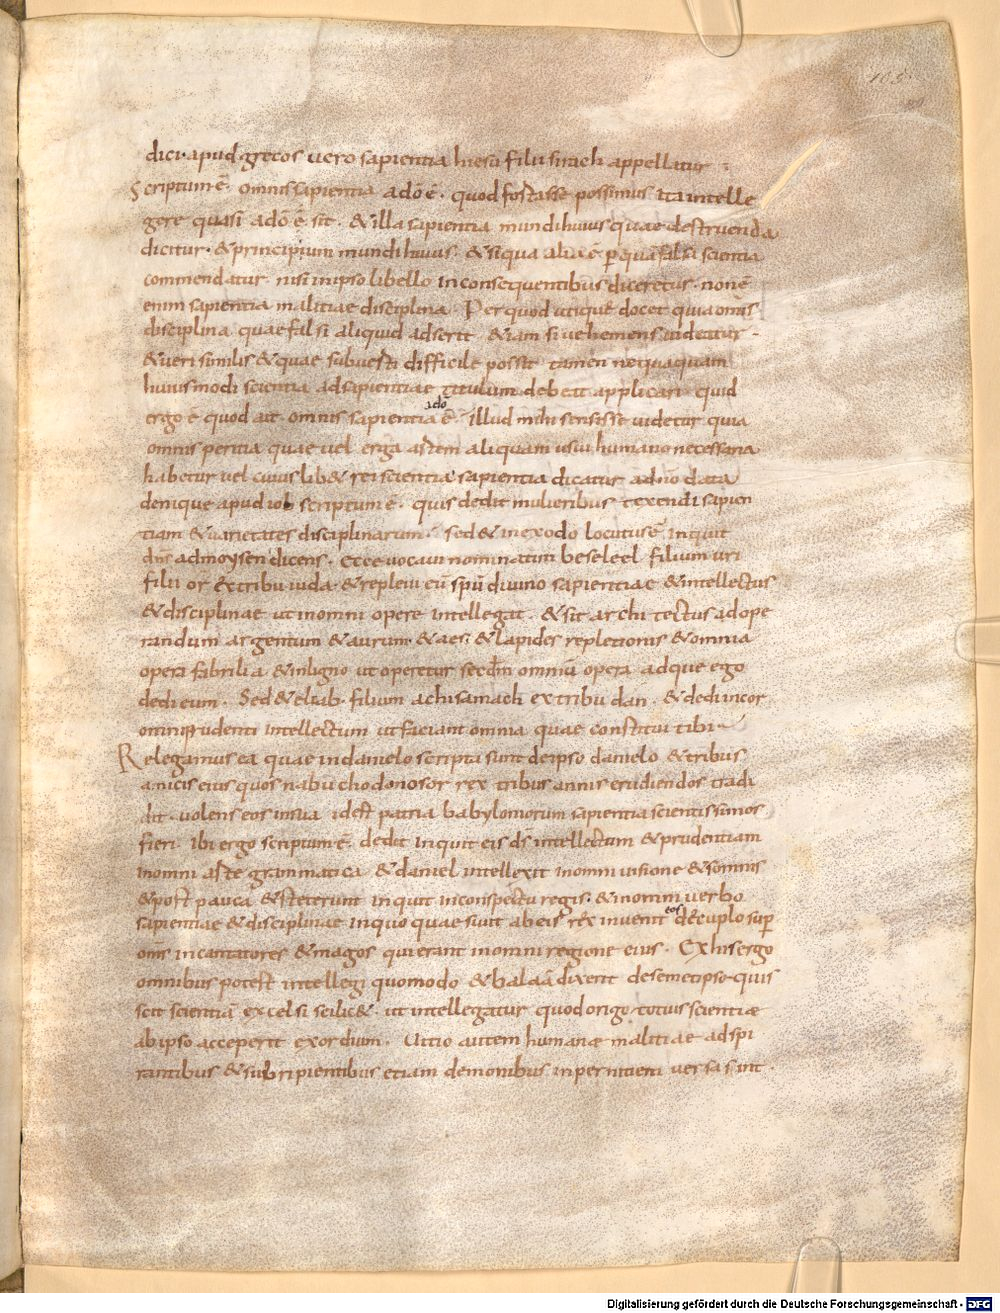 105
dici· apud grecos vero sapientia hiesu filii sirach appellatur :
Scriptum ē· omnis sapientia a dō ē· quod fortasse possimus ita intelle
gere quasi a dō ē sit· & illa sapientia mundi huius quae destruenda
dicitur· & principium mundi huius· & si qua alia ē p quā falsa scientia
commendatur· nisi in ipso libello in consequentibus diceretur· non ē
enim sapientia malitiae disciplina· Per quod utique docet quia omīs
disciplina quae falsi aliquid adserit & iam si vehemens videatur·
& veri similis & quae subverti difficile possit tamen nequaquam
huiusmodi scientia ad sapientiae titulum debeat applicari· quid
ergo ē quod ait omnis sapientia a dō ē· illud mihi sensisse videtur quia
omnis peritia quae vel erga artem aliquam usui humano necessaria
habetur vel cuius lib& rei scientia sapientia dicatur a dn̄o data
denique apud iob scriptum ē· quis dedit mulieribus texendi sapien
tiam & varietates disciplinarum· sed & in exodo locutus ē inquit
dn̄s ad moysen dicens· ecce vocavi nominatim beseleel filium uri
filii or ex tribu iuda· & replevi eū spū divino sapientiae & intellectus
& disciplinae ut in omni opere intellegat· & sit architectus ad ope
randum argentum & aurum & aes· & lapides repletionis & omnia
opera fabrilia & in ligno ut operetur secdm̄ omniā opera ad que ego
dedi eum· Sed & eliab· filium achisamach ex tribu dan· & dedi in cor
omni prudenti intellectum ut faciant omnia quae constitui tibi·
Relegamus ea quae in danielo scripta sunt de ipso danielo & tribus
amicis eius quos nabuchodonosor rex tribus annis erudiendos tradi
dit· volens eos in sua id est patria babyloniorum sapientia scientissimos
fieri· Ibi ergo scriptum ē· dedit inquit eis ds̄ intellectum & prudentiam
in omni arte grammatica & daniel intellexit in omni visione & somnis
& post pauca & steterunt inquit in conspectu regis· & in omni verbo
sapientiae & disciplinae in quo quae sivit ab eis rex invenit eos decuplo sup
oms̄ incantatores & magos qui erant in omni regione eius· Ex his ergo
omnibus potest intellegi quomodo & balaā dixerit de semetipso· quis
scit scientiā excelsi scilic&· ut intellegatur quod origo totius scientiae
ab ipso acceperit exordium· Vitio autem humanae malitiae adspi
rantibus & subripientibus etiam demonibus in pernitiem versa sint·
Digitalisierung gefördert durch die Deutsche Forschungsgemeinschaft - DFG